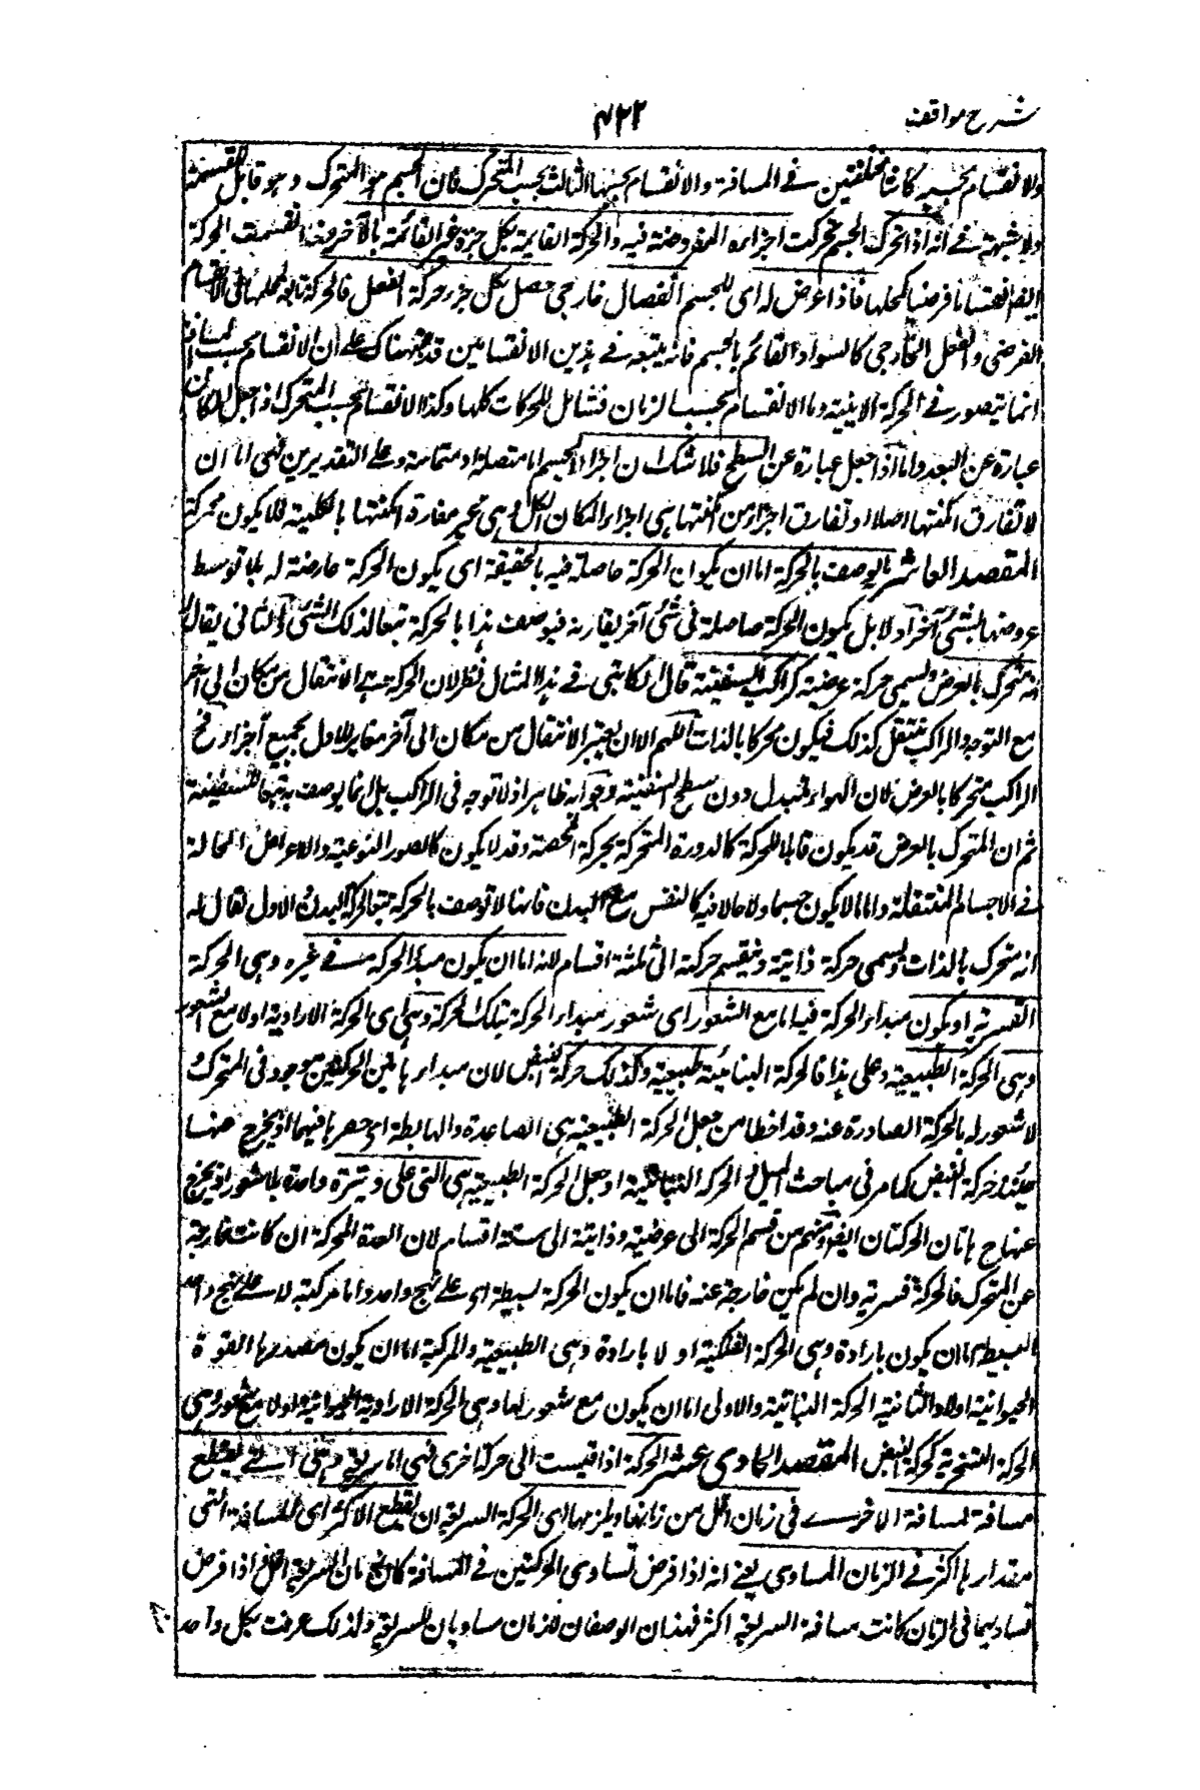 شرح مواقف
٤٢٢
ولا انقسام بحسبه كانتا مختلفتين فى المسافة والانقسام بحسبها الثالث بحسب المتحرك فان الجسم هو المتحرك وهو قابل للقسمة
ولا شبهة فى انه اذا تحرك الجسم تحركت اجزاءه المفروضة فيه والحركة القايمة بكل جزء غير القائمة بالآخر وقد انقسمت الحركة
ايضا انقساما فرضيا كمحلها فاذا عرض له اى للجسم انفصال خارجى حصل لكل جزء حركة بالفعل فالحركة تابعة لمحلها فى الانقسام
الفرضى والفعل الخارجى كالسواد القائم بالجسم فانه يتبعه فى هذين الانقسامين قد نبهناك على ان الانقسام بحسب المسافة
انما يتصور فى الحركة الاينية واما الانقسام بحسب الزمان فشامل للحركات كلها وكذا الانقسام بحسب المتحرك اذا جعل المكان
عبارة عن البعد واما اذا جعل عبارة عن السطح فلا شك ان اجزاء الجسم اما متصلة او متماسة وعلى التقديرين فهى اما ان
لا تفارق امكنتها اصلا او تفارق اجزاء من امكنتها هى اجزاء المكان الكل وهى غير مفارقة امكنتها بالكلية فلا يكون متحركة
المقصد العاشر ما يوصف بالحركة اما ان يكون الحركة حاصلة فيه بالحقيقة اى يكون الحركة عارضة له بلا توسط
عروضها لشئ آخر او لا بل يكون الحركة حاصلة فى شئ آخر يقارنه فيوصف هذا بالحركة تبعا لذلك الشئ والثانى يقال
انه متحرك بالعرض وتسمى حركة عرضية كراكب السفينة قال الكاتبى فى هذا المثال نظر لان الحركة هى الانتقال من مكان الى آخر
مع التوجه والراكب منتقل كذلك فيكون متحركا بالذات اللهم الا ان يعتبر الانتقال من مكان الى آخر مغاير للاول بجميع اجزاءه فح
الراكب متحركا بالعرض لان الهواء متبدل دون سطح السفينة وجوابه ظاهر اذ لا توجه فى الراكب بل انما يوصف به تبعا للسفينة
ثم ان المتحرك بالعرض قد يكون قابلا للحركة كالدرة المتحركة بحركة الحقة وقد لا يكون كالصور النوعية والاعراض الحالة
فى الاجسام المنتقلة واما ما لا يكون جسما ولا حالا فيه كالنفس مع البدن فانها لا توصف بالحركة تبعا لحركة البدن والاول يقال له
انه متحرك بالذات وتسمى حركة ذاتية وينقسم حركته الى ثلثة اقسام لانه اما ان يكون مبدأ الحركة فى غيره وهى الحركة
القسرية او يكون مبداء الحركة فيه اما مع الشعور اى شعور مبداء الحركة بتلك الحركة وهى اى الحركة الارادية او لا مع الشعور
وهى الحركة الطبيعية وعلى هذا فالحركة النباتية طبيعية وكذلك حركة النبض لان مبداء هاتين الحركتين موجود فى المتحرك و
لا شعور له بالحركة الصادرة عنه وقد اخطأ من جعل الحركة الطبيعية هى الصاعدة والهابطة اى حصرها فيهما اذ يخرج عنها
حينئذ حركة النبض كما مر فى مباحث الميل والحركة النباتية او جعل الحركة الطبيعية هى التى على وتيرة واحدة بلا شعور اذ يخرج
عنها ح هاتان الحركتان ايضا ومنهم من قسم الحركة الى عرضية وذاتية الى ستة اقسام لان القوة المحركة ان كانت خارجة
عن المتحرك فالحركة قسرية وان لم يكن خارجة عنه فاما ان يكون الحركة بسيطة اى على نهج واحد واما مركبة لا على نهج واحد
البسيطة اما ان يكون بارادة وهى الحركة الفلكية او لا بارادة وهى الطبيعية والمركبة اما ان يكون مصدرها القوة
الحيوانية او لا والثانية الحركة النباتية والاولى اما ان يكون مع شعور بها وهى الحركة الارادية الحيوانية او لا مع شعور وهى
الحركة التسخيرية كحركة النبض المقصد الحادى عشر الحركة اذا قيست الى حركة اخرى فهى اما سريعة وهى التى تقطع
مسافة لمسافة الاخرى فى زمان اقل من زمانها ويلزمها اى الحركة السريعة ان تقطع الاكثر اى المسافة التى
مقدارها اكثر فى الزمان المساوى يعنى انه اذا فرض تساوى الحركتين فى المسافة كان زمان السريعة اقل واذا فرض
تساويهما فى الزمان كانت مسافة السريعة اكثر فهذان الوصفان لازمان مساويان للسريعة ولذلك عرفت بكل واحد